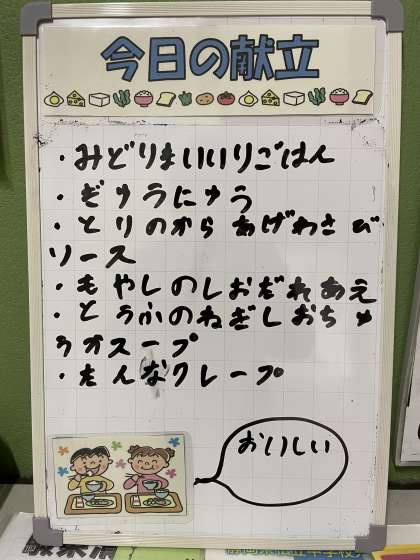 今日の献立
・みどりまいいりごはん
・ぎゅうにゅう
・とりのからあげわさび
ソース
・もやしのしおだれあえ
・とうふのねぎしおちゅ
うカスープ
・たんなクレープ
おいしい